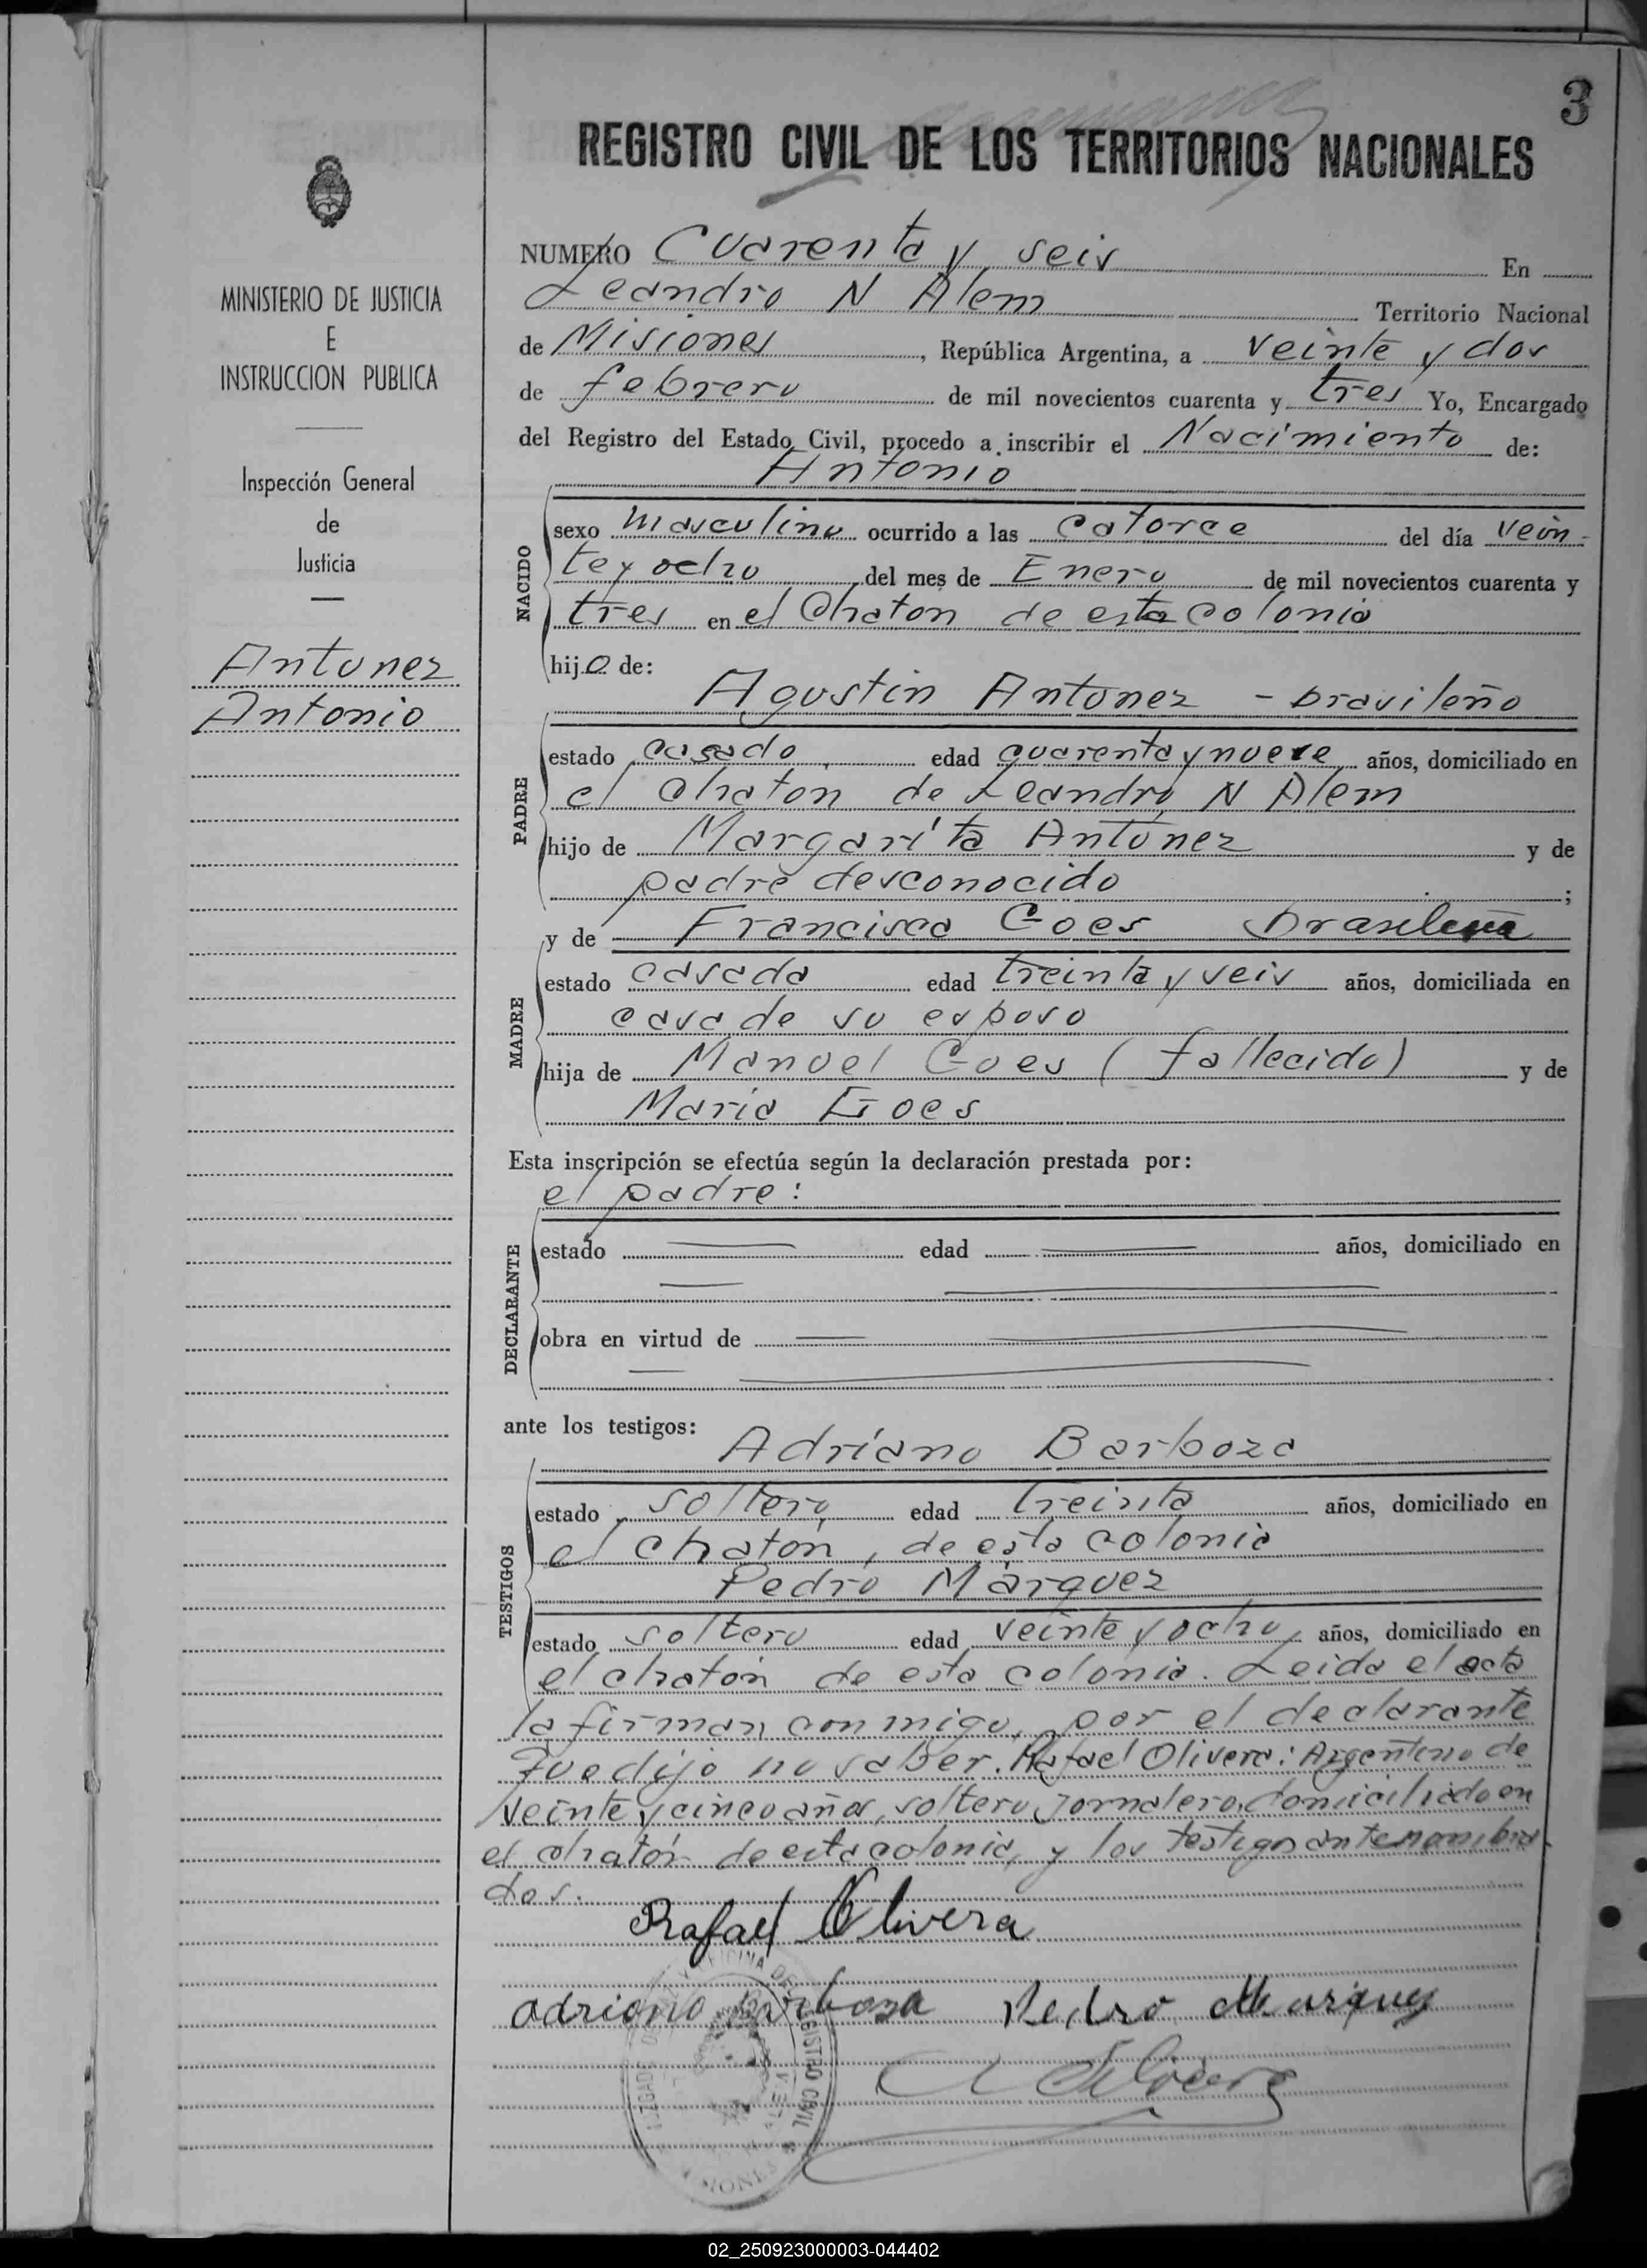 3
REGISTRO CIVIL DE LOS TERRITORIOS NACIONALES
MINISTERIO DE JUSTICIA
E
INSTRUCCION PUBLICA
Inspección General
de
Justicia
Antunez
Antonio
NUMERO Cuarenta y seis En
Leandro N Alem Territorio Nacional
de Misiones, República Argentina, a veinte y dos
de febrero de mil novecientos cuarenta y tres Yo, Encargado
del Registro del Estado Civil, procedo a inscribir el Nacimiento de:
Antonio
NACIDO
sexo masculino ocurrido a las catorce del día vein-
te y ocho del mes de Enero de mil novecientos cuarenta y
tres en el Chaton de esta colonia
hijo de:
Agustin Antunez - brasileño
PADRE
estado casado edad cuarenta y nueve años, domiciliado en
el Chaton de Leandro N Alem
hijo de Margarita Antunez y de
padre desconocido ;
y de Francisca Goes brasileña
MADRE
estado casada edad treinta y seis años, domiciliada en
casa de su esposo
hija de Manuel Goes (fallecido) y de
Maria Goes
Esta inscripción se efectúa según la declaración prestada por:
el padre:
DECLARANTE
estado edad años, domiciliado en
obra en virtud de
ante los testigos:
Adriano Barboza
TESTIGOS
estado soltero edad treinta años, domiciliado en
el chatón, de esta colonia
Pedro Márquez
estado soltero edad veinte y ocho años, domiciliado en
el chatón de esta colonia. Leida el acta
la firman conmigo, por el declarante
que dijo no saber. Rafael Olivera: Argentino de
veinte y cinco años, soltero, jornalero, domiciliado en
el chatón de esta colonia, y los testigos antenombra-
dos.
Rafael Olivera
adriano barboza Pedro Marquez
02_250923000003-044402